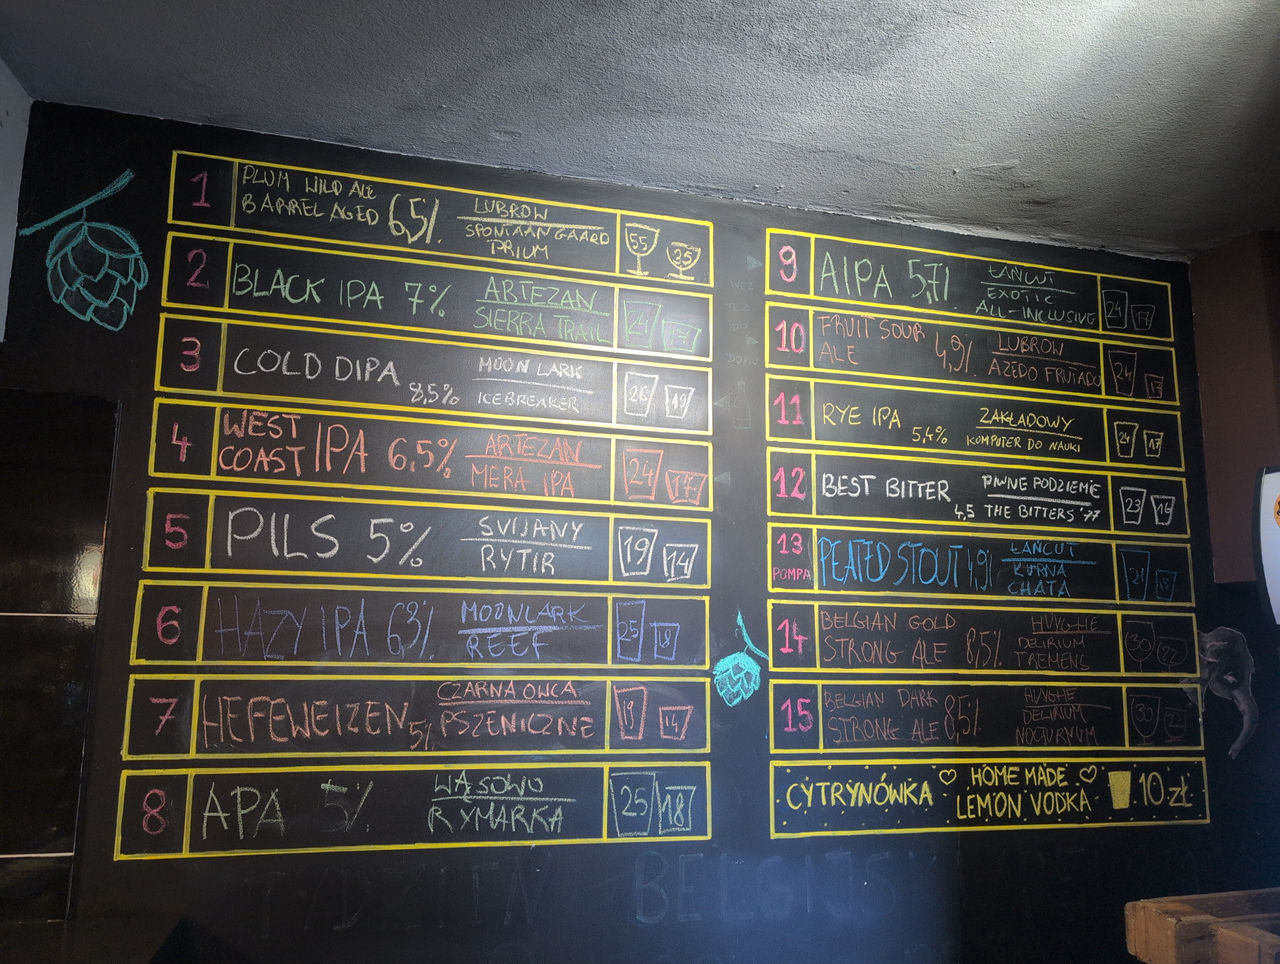 1
PLUM WILD ALE
BARREL AGED 6,5%
LUBROW
SPONTAAN GAARD
PRIUM
55 35
2
BLACK IPA 7%
ARTEZAN
SIERRA TRAIL
24 17
3
COLD DIPA
8,5%
MOON LARK
ICEBREAKER
26 19
4
WEST
COAST IPA 6,5%
ARTEZAN
MERA IPA
24 17
5
PILS 5%
SVIJANY
RYTIR
19 14
6
HAZY IPA 6,3%
MOONLARK
REEF
25 18
7
HEFEWEIZEN 5%
CZARNA OWCA
PSZENICZNE
19 14
8
APA 5%
WĄSOWO
RYMARKA
25 18
9
AIPA 5,7%
ŁAŃCUT
EXOTIC
ALL-INCLUSIVE
24 17
10
FRUIT SOUR
ALE 4,9%
LUBROW
AZEDO FRUTADO
24 17
11
RYE IPA
5,4%
ZAKŁADOWY
KOMPUTER DO NAUKI
24 17
12
BEST BITTER
4,5
PIWNE PODZIEMIE
THE BITTERS '77
23 16
13
POMPA
PEATED STOUT 4,9%
ŁAŃCUT
KURNA
CHATA
21 15
14
BELGIAN GOLD
STRONG ALE 8,5%
HUYGHE
DELIRIUM
TREMENS
30 22
15
BELGIAN DARK
STRONG ALE 8,5%
HUYGHE
DELIRIUM
NOCTURNUM
30 22
CYTRYNÓWKA
HOME MADE
LEMON VODKA
10 zł
TYDZIEŃ BELGIJSK